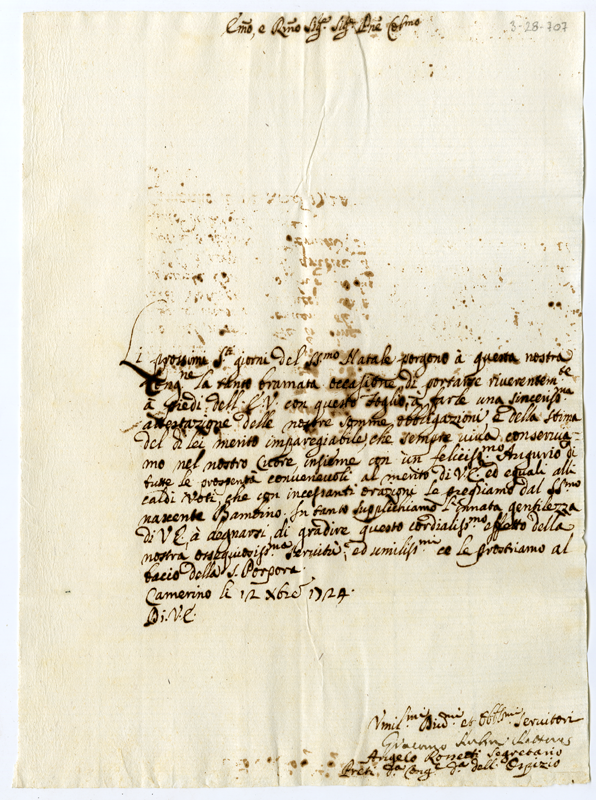 Emo, e Rmo Sig.r Sig.r Pne Colmo
3-28-707
Li prossimi S.ti giorni del SSmo Natale porgono à questa nostra
Congne la tanto bramata occasione, di portarsi riverentemte
à piedi dell'E.V. con questo foglio, à farle una sincerissma
attestazione delle nostre somme obbligazioni, e della stima
del di lei merito impareggiabile, che sempre viva conservia-
mo nel nostro Cuore, insieme con un felicissmo Augurio di
tutte le prosperità convenevoli al merito di V.E. ed equali alli
caldi Voti, che con incessanti orazioni Le preghiamo dal SSmo
nascente Bambino. In tanto supplichiamo l'innata gentilezza
di V.E. à degnarsi di gradire questo cordialissmo effetto della
nostra ossequiosissma servitù, ed umilissmi ce le prostriamo al
bacio della S. Porpora.
Camerino li 12 Xbre 1724.
Di V.E.
Vmilmi Divmi et Obbmi Servitori
Giacomo
Angelo Rosetti Segretario
Preti da Congne da dell'Ospizio